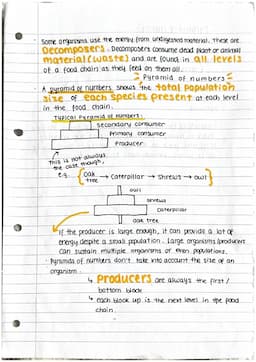 Some organisms use the energy from undigested material. These are
Decomposers. Decomposers consume dead plant or animal
material (waste) and are found in all levels
of a food chain as they feed on them all.
Pyramid of numbers
A pyramid of numbers shows the total population
size of each species present at each level
in the food chain.
Typical Pyramid of numbers:
Secondary consumer
Primary consumer
Producer
This is not always
the case though,
e.g. Oak tree → Caterpillar → Shrews → owl
owl
Shrews
Caterpillar
Oak tree
If the producer is large enough, it can provide a lot of
energy despite a small population. Large organisms (producers
can sustain multiple organisms or even populations.
Pyramids of numbers don't take into account the size of an
organism.
↳ PRODUCERS are always the first /
bottom block
↳ each block up is the next level in the food
chain.